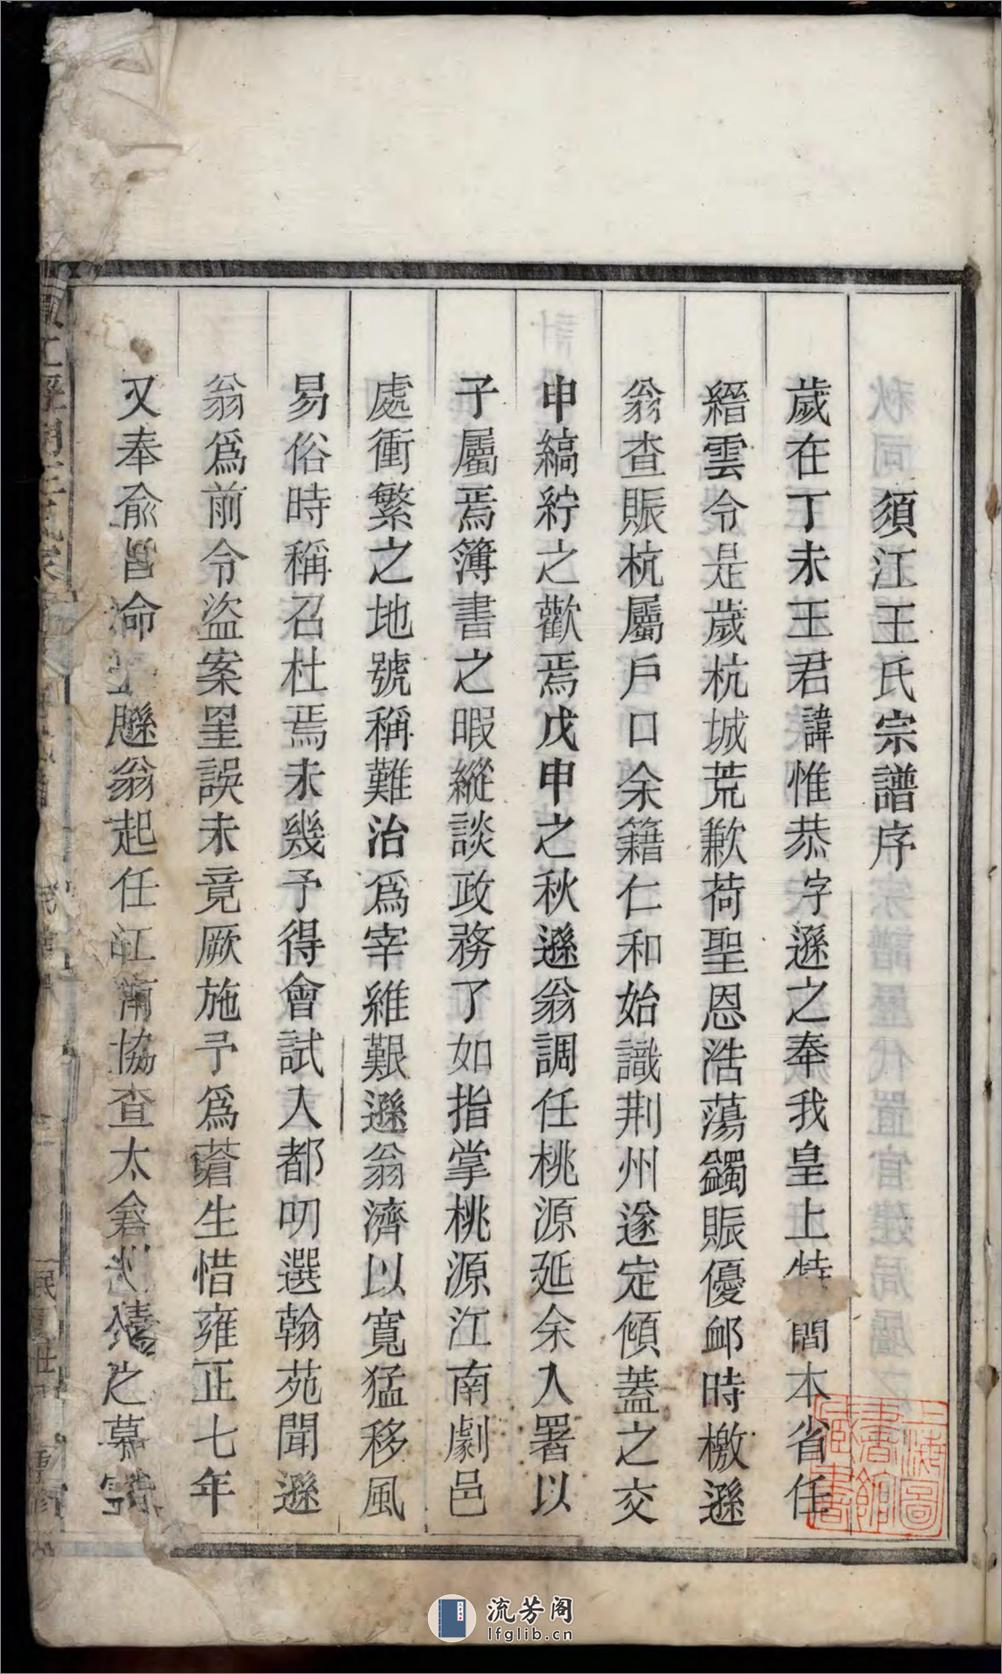 須江王氏宗譜序
歲在丁未王君諱惟恭字遜之奉我皇上特簡本省任
縉雲令是歲杭城荒歉荷聖恩浩蕩蠲賑優卹時檄遜
翁查賑杭屬戶口余籍仁和始識荆州遂定傾蓋之交
申縞紵之歡焉戊申之秋遜翁調任桃源延余入署以
子屬焉簿書之暇縱談政務了如指掌桃源江南劇邑
處衝繁之地號稱難治為宰維艱遜翁濟以寬猛移風
易俗時稱召杜焉未幾予得會試入都叨選翰苑聞遜
翁為前令盜案罣誤未竟厥施予為蒼生惜雍正七年
又奉俞旨命遜翁起任江南協查太倉州積之幕
上海圖書館藏書
流芳阁
lfglib.cn